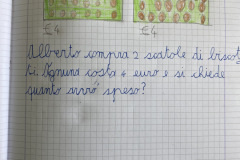 €4 €4
Alberto compra 2 scatole di biscot
ti. Ognuna costa 4 euro e si chiede
quanto avrò speso?